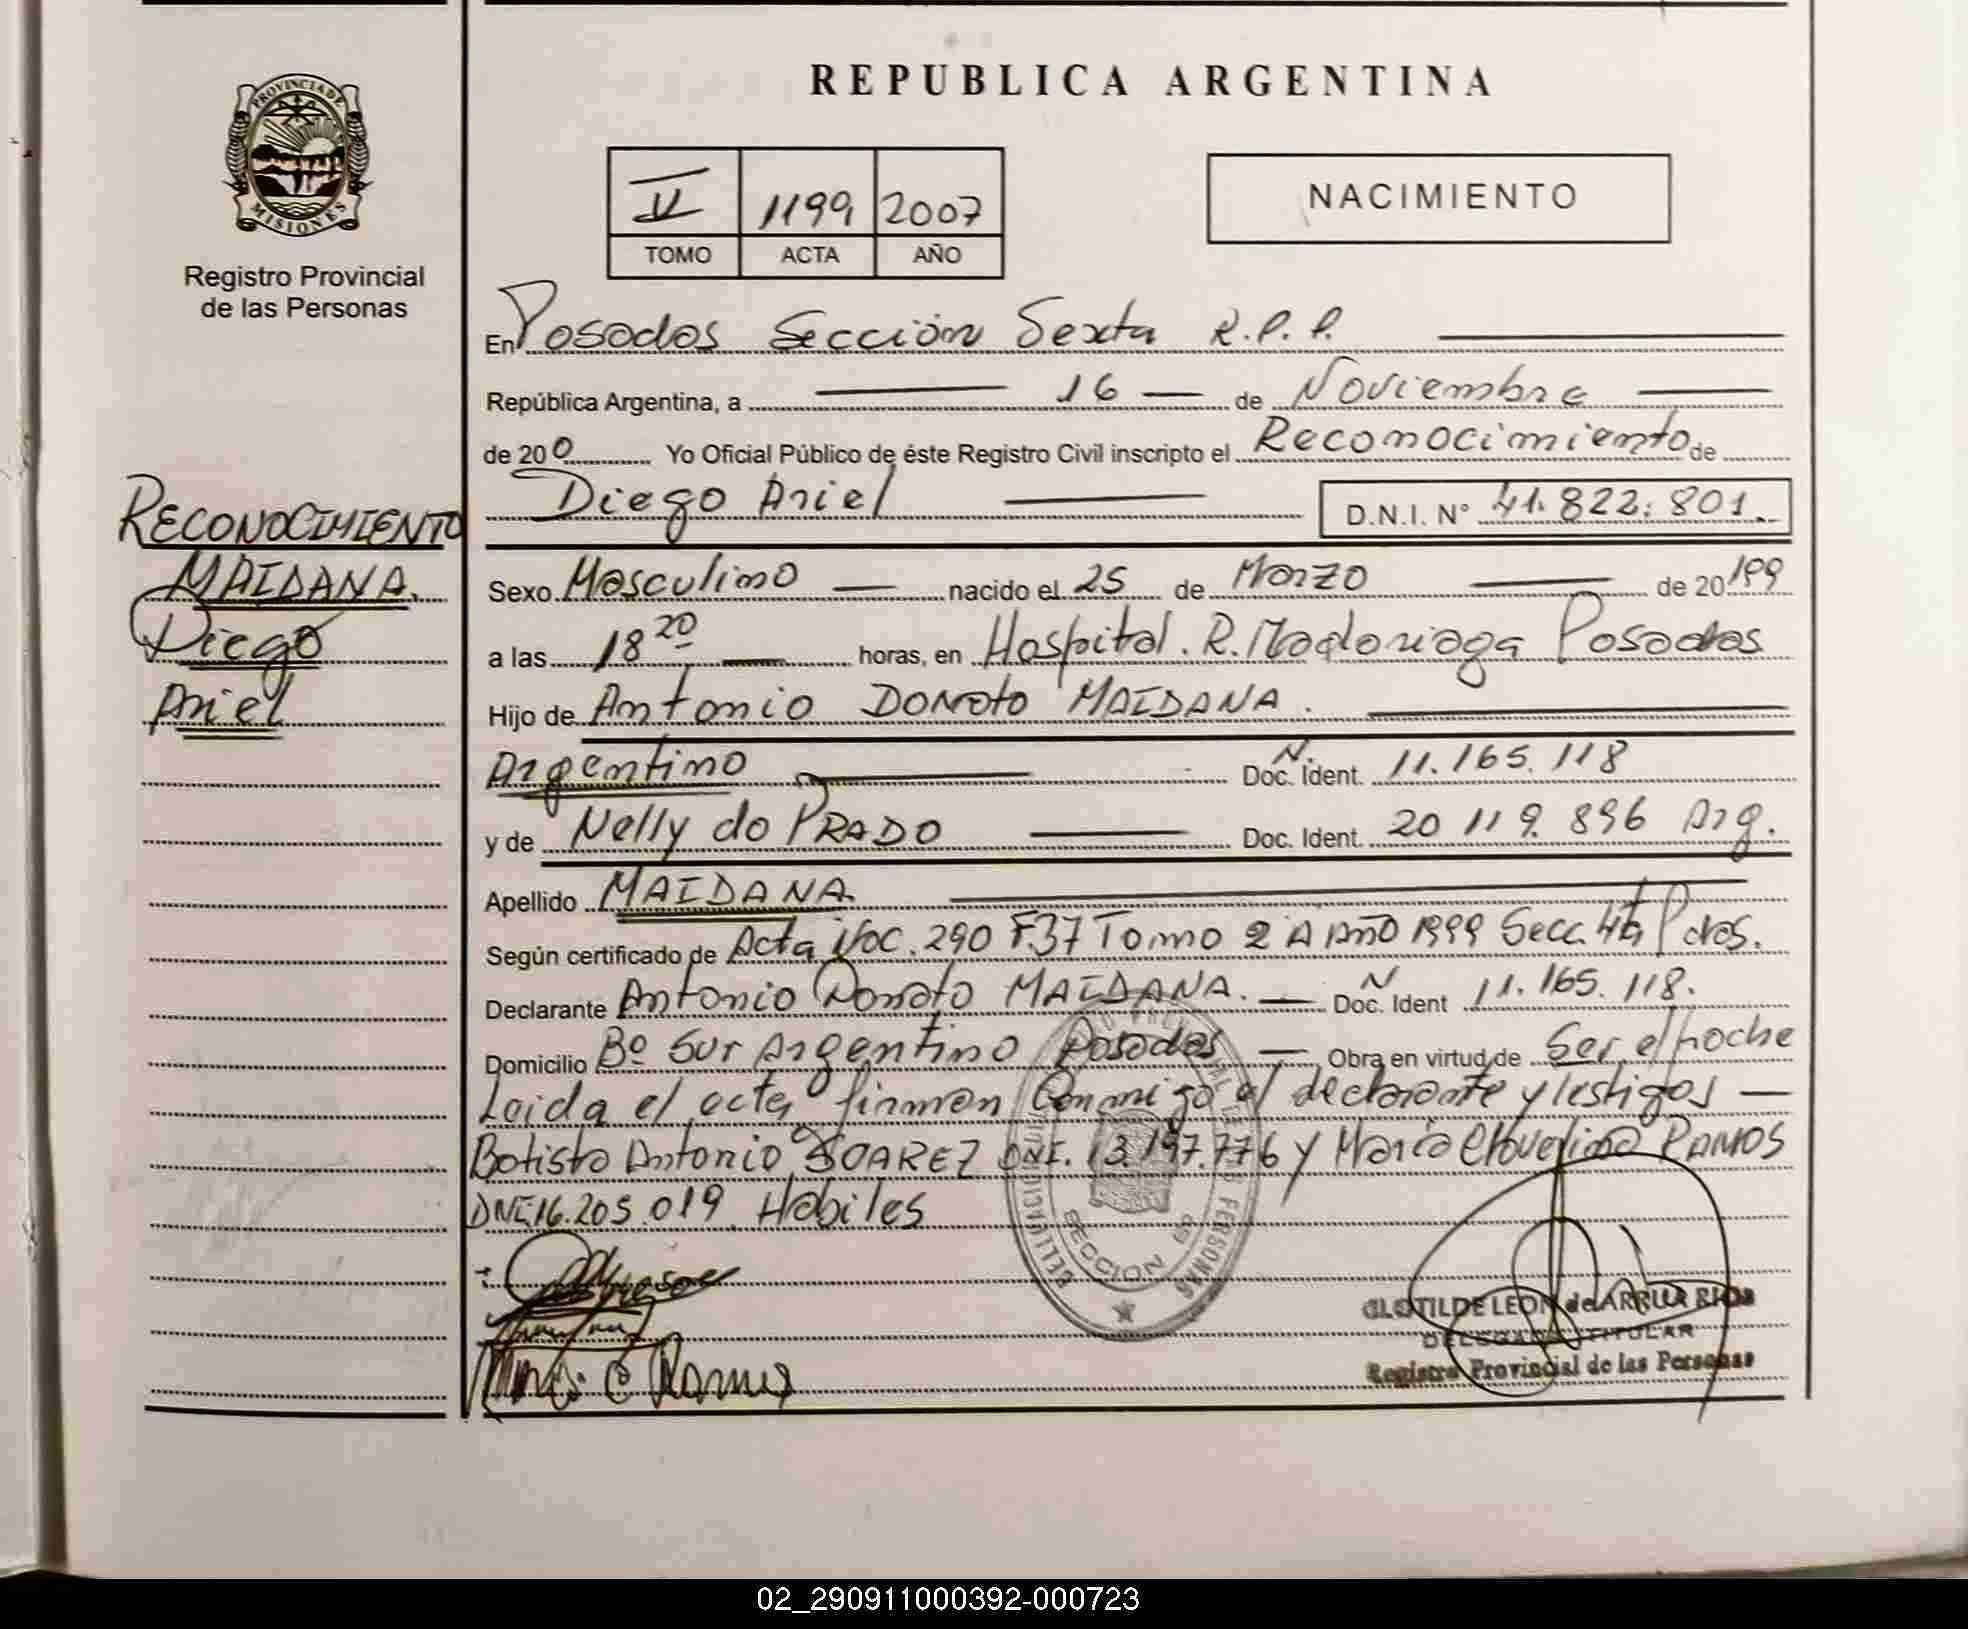 PROVINCIA DE
MISIONES
Registro Provincial
de las Personas
REPUBLICA ARGENTINA
V 1199 2007
TOMO ACTA AÑO
NACIMIENTO
En Posadas Sección Sexta R.P.P.
República Argentina, a 16 de Noviembre
de 200 Yo Oficial Público de éste Registro Civil inscripto el Reconocimiento de
Diego Ariel D.N.I. N° 41.822.801.
RECONOCIMIENTO
MAIDANA.
Diego
Ariel
Sexo Masculino nacido el 25 de Marzo de 20 199
a las 18 20 horas, en Hospital. R. Madariaga Posadas
Hijo de Antonio Donato MAIDANA.
Argentino N. Doc. Ident. 11.165.118
y de Nelly do PRADO Doc. Ident. 20 119.896 Arg.
Apellido MAIDANA.
Según certificado de Acta 290 F.37 Tomo 2 A Año 1999 Secc. 4ta Pdas.
Declarante Antonio Donato MAIDANA. N Doc. Ident 11.165.118.
Domicilio Bº Sur Argentino Posadas Obra en virtud de Ser el
Leida el acta firman Conmigo el declarante y testigos
Batista Antonio SOAREZ DNI. 13.197.776 y Maria RAMOS
DNI 16.205.019. Habiles
SECCION
PERSONAS
CLOTILDE LEON de ARRUA RIOS
DELEGADA TITULAR
Registro Provincial de las Personas
02_290911000392-000723